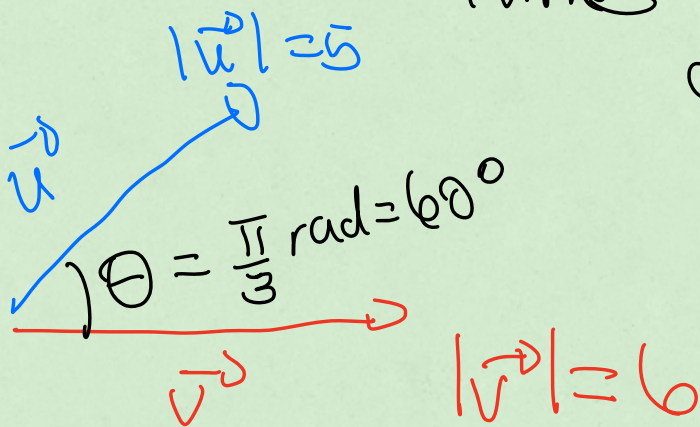 |u⃗| = 5
u⃗
θ = π/3 rad = 60°
v⃗
|v⃗| = 6